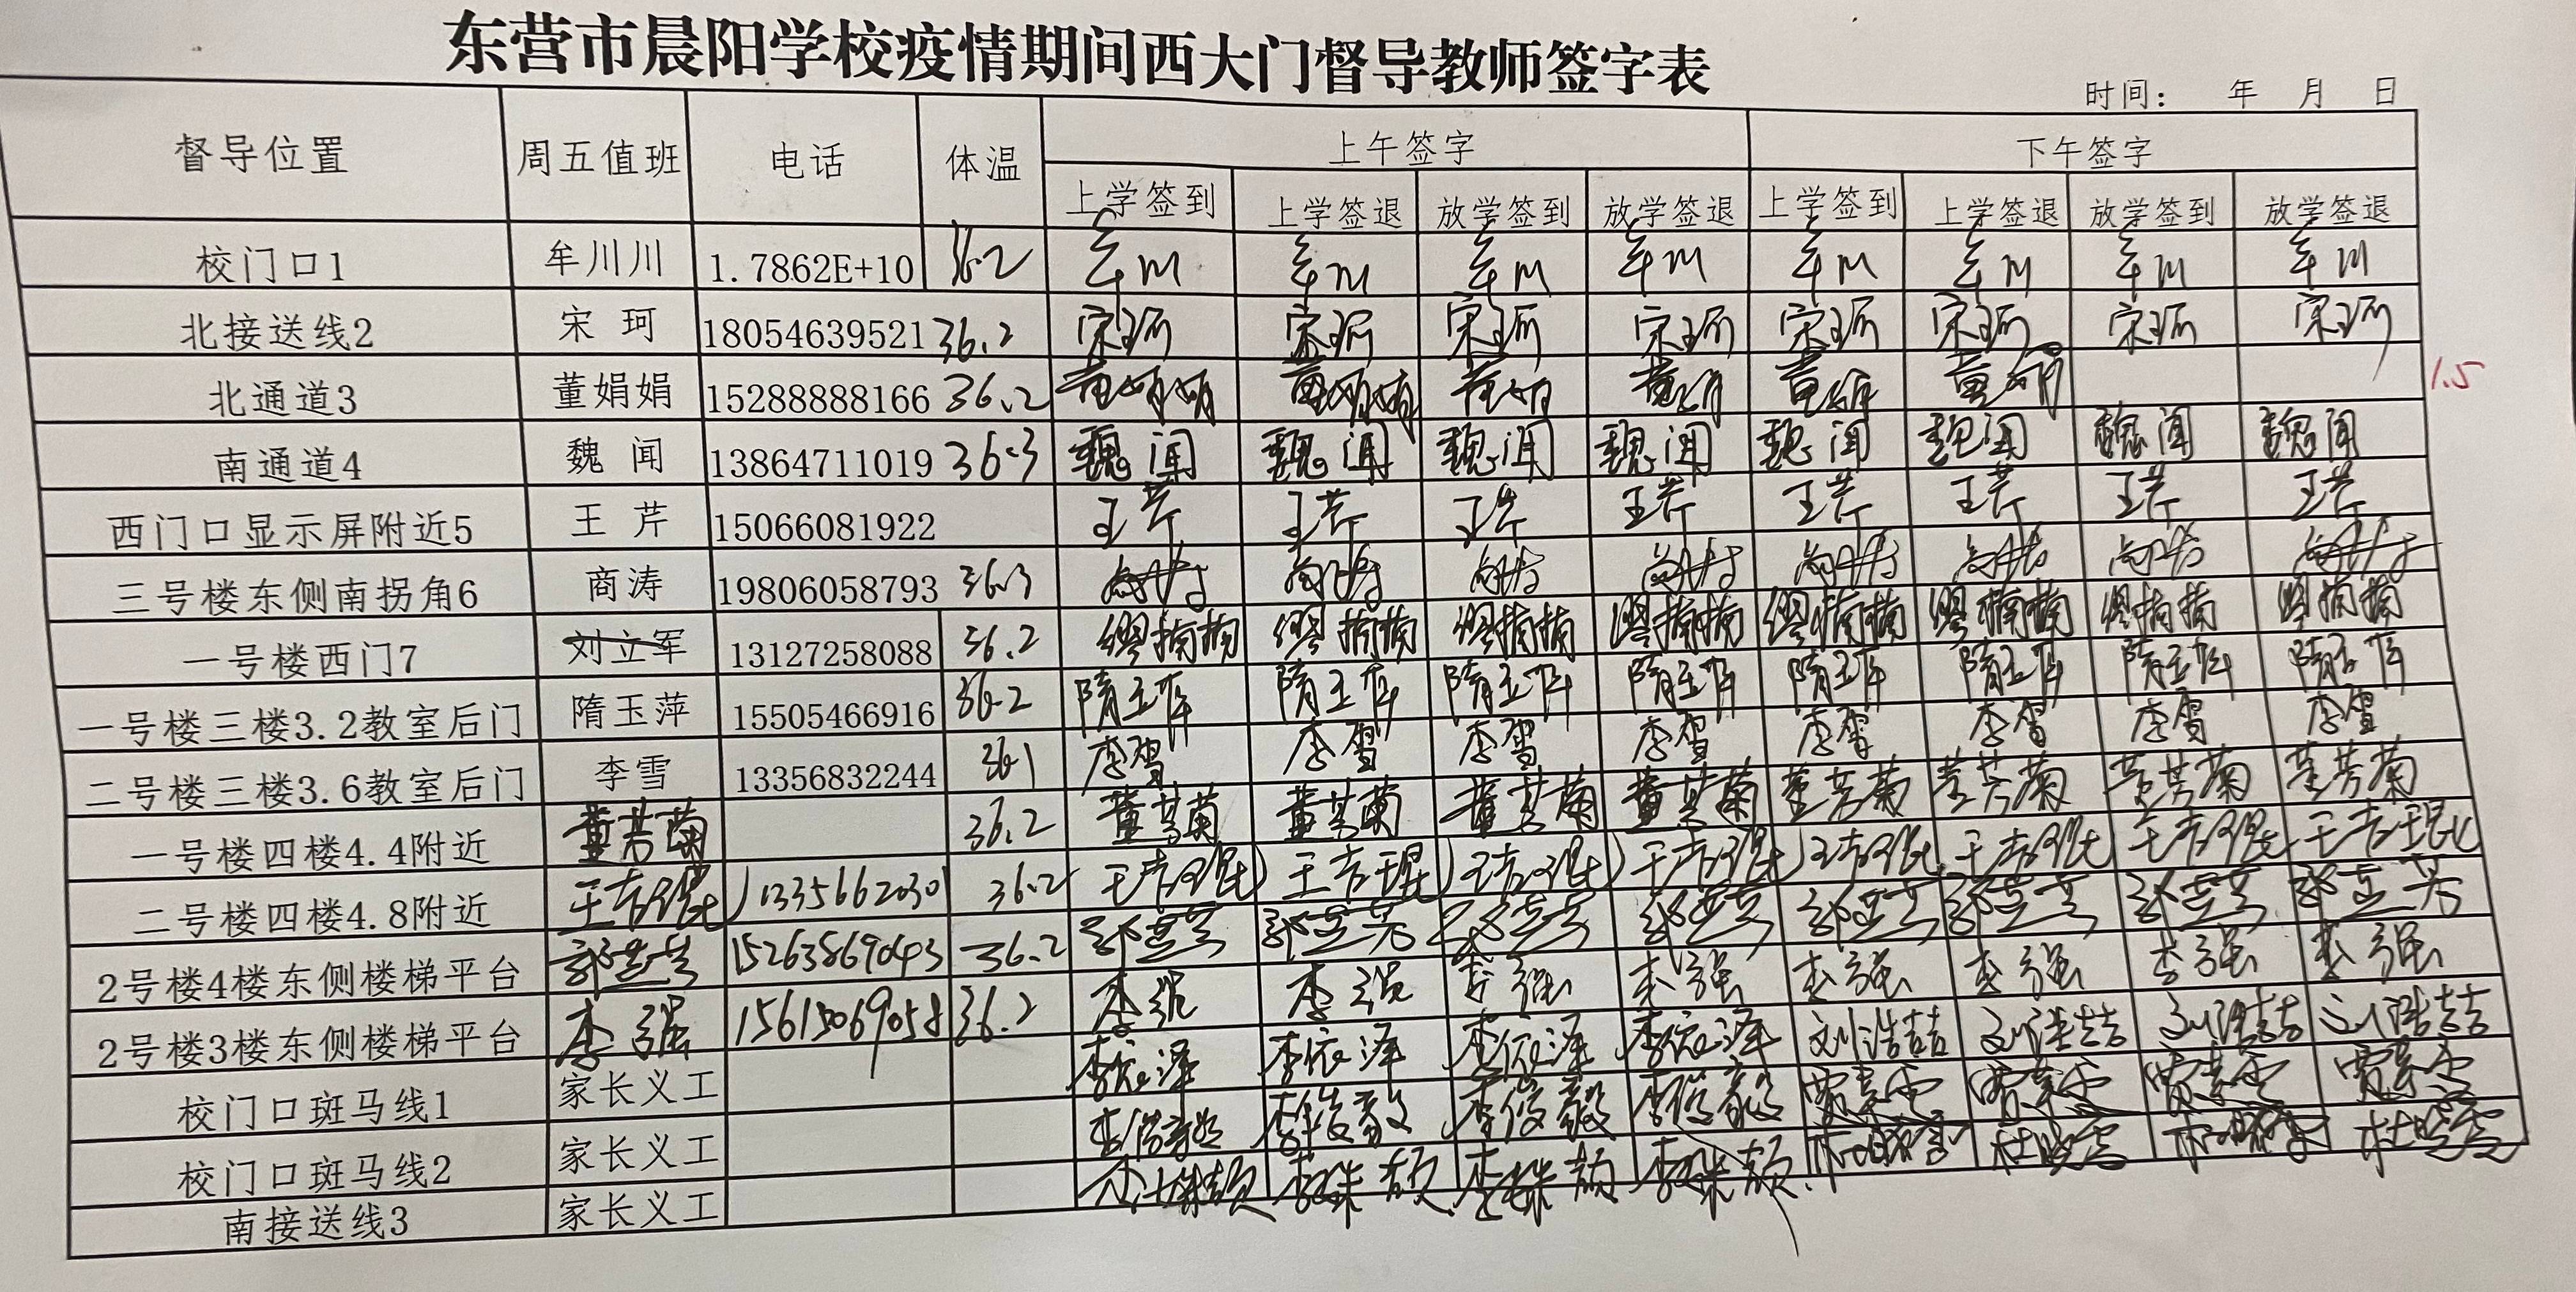 东营市晨阳学校疫情期间西大门督导教师签字表
时间： 年 月 日
督导位置 周五值班 电话 体温 上午签字 下午签字
上学签到 上学签退 放学签到 放学签退 上学签到 上学签退 放学签到 放学签退
校门口1 牟川川 1.7862E+10 36.2 牟川 牟川 牟川 牟川 牟川 牟川 牟川 牟川
北接送线2 宋 珂 18054639521 36.2 宋珂 宋珂 宋珂 宋珂 宋珂 宋珂 宋珂 宋珂
北通道3 董娟娟 15288888166 36.2 董娟娟 董娟娟 董娟 董娟 董娟 董娟 1.5
南通道4 魏 闻 13864711019 36.3 魏闻 魏闻 魏闻 魏闻 魏闻 魏闻 魏闻 魏闻
西门口显示屏附近5 王 芹 15066081922 王芹 王芹 王芹 王芹 王芹 王芹 王芹 王芹
三号楼东侧南拐角6 商涛 19806058793 36.3 商涛 商涛 商涛 商涛 商涛 商涛 商涛 商涛
一号楼西门7 刘立军 13127258088 36.2
一号楼三楼3.2教室后门 隋玉萍 15505466916 36.2 隋玉萍 隋玉萍 隋玉萍 隋玉萍 隋玉萍 隋玉萍 隋玉萍 隋玉萍
二号楼三楼3.6教室后门 李雪 13356832244 36.1 李雪 李雪 李雪 李雪 李雪 李雪 李雪 李雪
一号楼四楼4.4附近 董芳菊 36.2 董芳菊 董芳菊 董芳菊 董芳菊 董芳菊 董芳菊 董芳菊 董芳菊
二号楼四楼4.8附近 1335662030 36.2
2号楼4楼东侧楼梯平台 15263869043 36.2
2号楼3楼东侧楼梯平台 李强 15615069058 36.2 李强 李强 李强 李强 李强 李强 李强 李强
校门口斑马线1 家长义工 李依泽 李依泽 李依泽 李依泽 刘浩喆 刘浩喆 刘浩喆 刘浩喆
校门口斑马线2 家长义工 李俊毅 李俊毅 李俊毅 李俊毅
南接送线3 家长义工